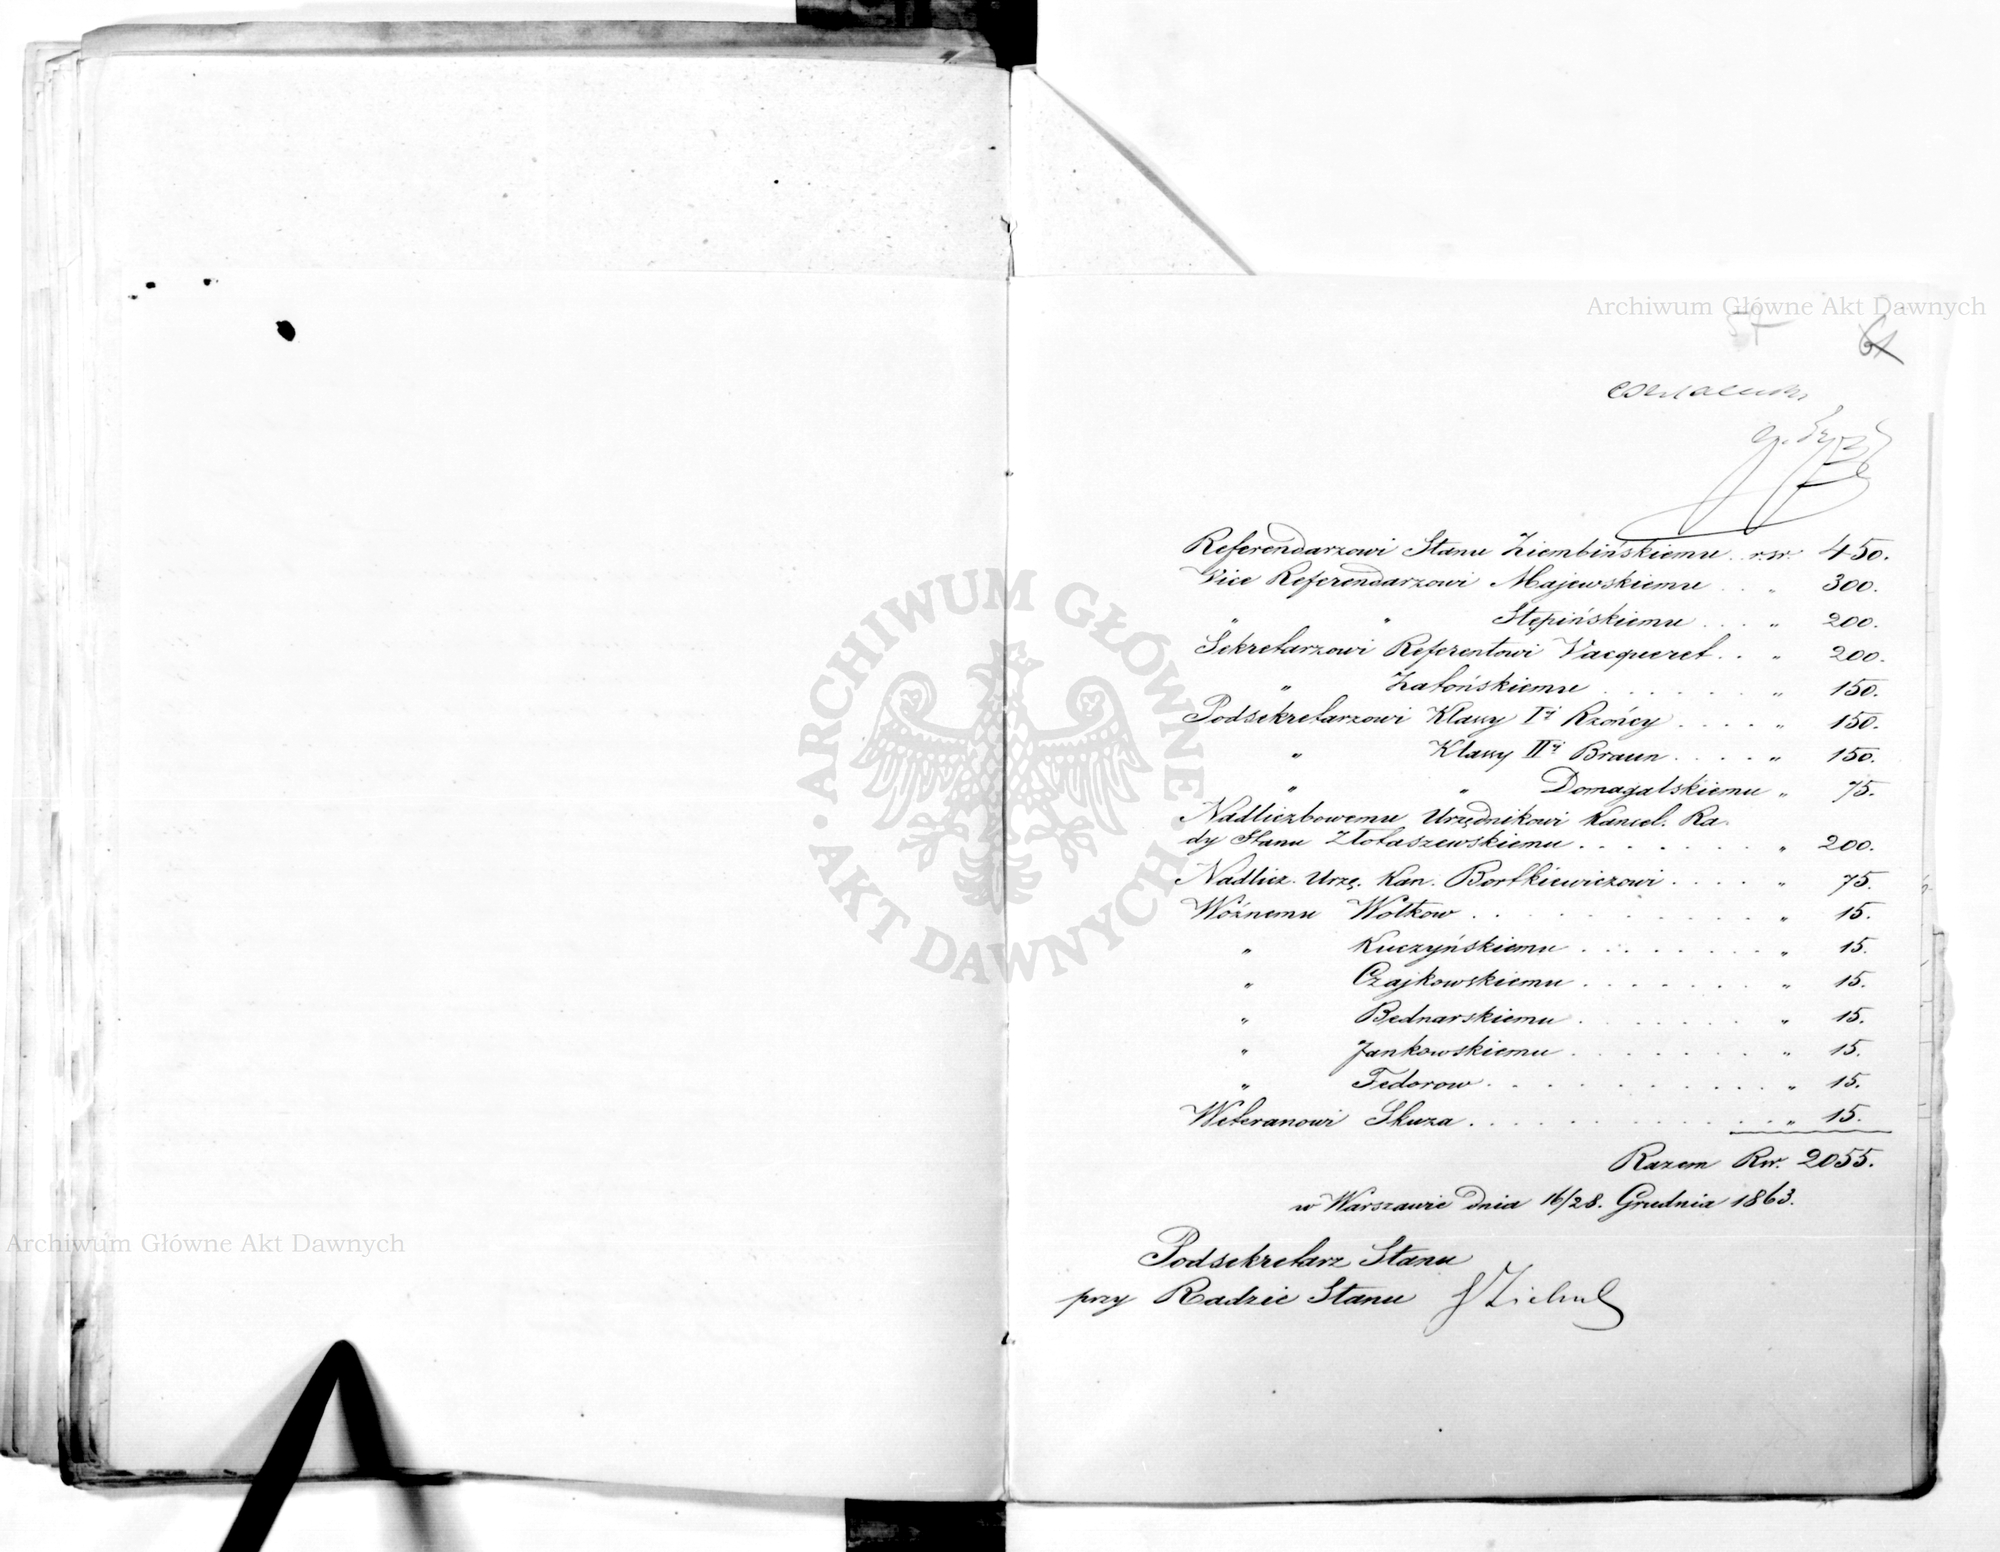 Archiwum Główne Akt Dawnych
57
61
Referendarzowi Stanu Ziembińskiemu . . rsr. 450.
Vice Referendarzowi Majewskiemu . . „ 300.
„ „ Stępińskiemu . . . „ 200.
Sekretarzowi Referentowi Vacqueret . . „ 200.
„ Zatońskiemu . . . . . . „ 150.
Podsekretarzowi Klassy Iej Rzońcy . . . . „ 150.
„ Klassy IIej Braun . . . . „ 150.
„ „ Domagalskiemu „ 75.
Nadliczbowemu Urzędnikowi Kancel. Ra-
dy Stanu Złotaszewskiemu . . . . . . . „ 200.
Nadlicz. Urzę. Kan. Bortkiewiczowi . . . . „ 75.
Woźnemu Wołkow . . . . . . . . . . „ 15.
„ Kuczyńskiemu . . . . . . . „ 15.
„ Czajkowskiemu . . . . . . . „ 15.
„ Bednarskiemu . . . . . . . „ 15.
„ Jankowskiemu . . . . . . . „ 15.
„ Fedorow . . . . . . . . . . „ 15.
Weteranowi Skuza . . . . . . . . . . . „ 15.
Razem Rsr. 2055.
w Warszawie dnia 16/28. Grudnia 1863.
Podsekretarz Stanu
przy Radzie Stanu
ARCHIWUM GŁÓWNE
AKT DAWNYCH
Archiwum Główne Akt Dawnych